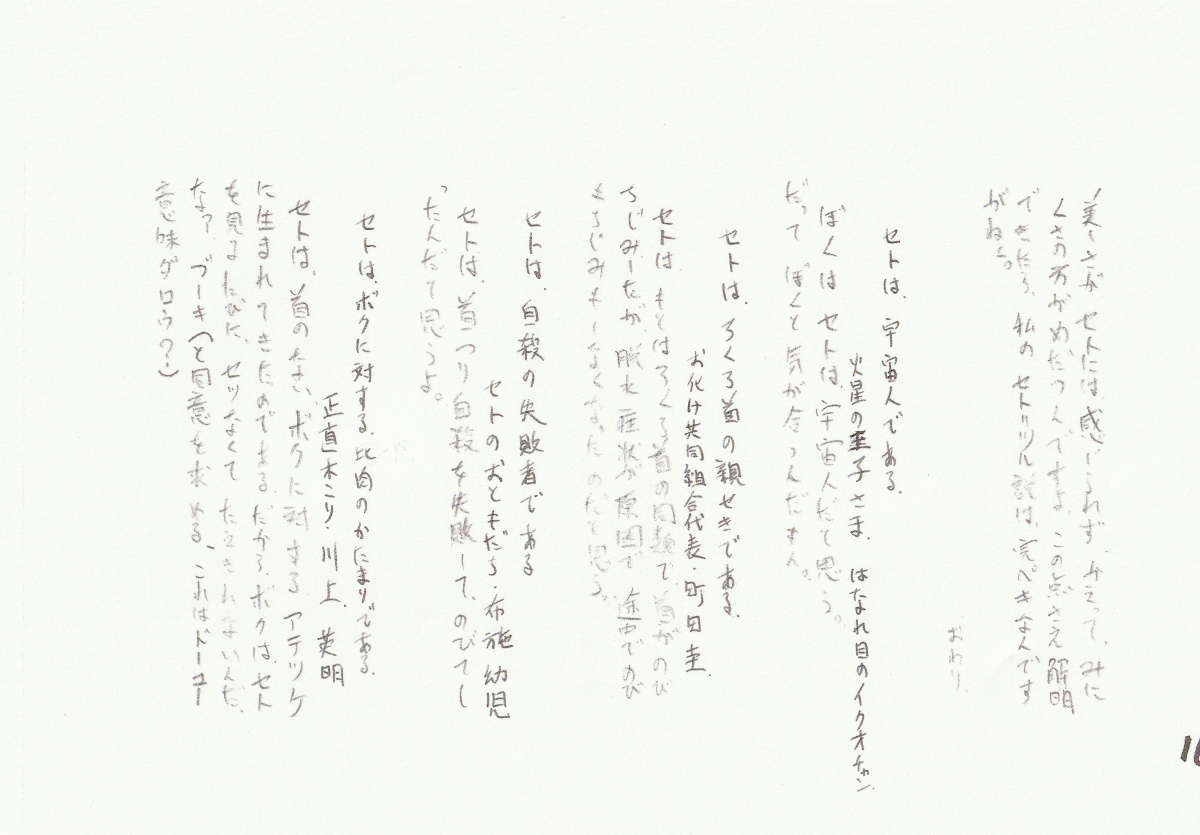 美しさが セトには感じられず、かえって、みに
くさの方がめだつんですよ、この点さえ解明
できたら、私の セトリツル説は、完ペきなんです
がねぇ。
おわり、
セトは、宇宙人である、
火星の王子さま、はなれ目のイクオチャン、
ぼくは セトは、宇宙人だと思う。
だって ぼくと気が合うんだもん。
セトは、ろくろ首の親せきである、
お化け共同組合代表・町田圭、
セトは、もとはろくろ首の同類で、首がのび
ちじみしたが、脱水症状が原因で、途中でのび
もちじみもしなくなったのだと思う。
セトは、自殺の失敗者である
セトのおともだち・布施幼児
セトは、首つり自殺を失敗して、のびてし
ったんだと思うよ。
セトは、ボクに対する比肉のかたまりである、
正直木こり・川上、英明
セトは、首のない、ボクに対する アテツケ
に生まれてきたのである、だから、ボクは、セト
を見るたびに、セツなくて たまされないんだ、
なァ、ブーキ(と同意を求める、これはドーユー
意味ダロウ?)